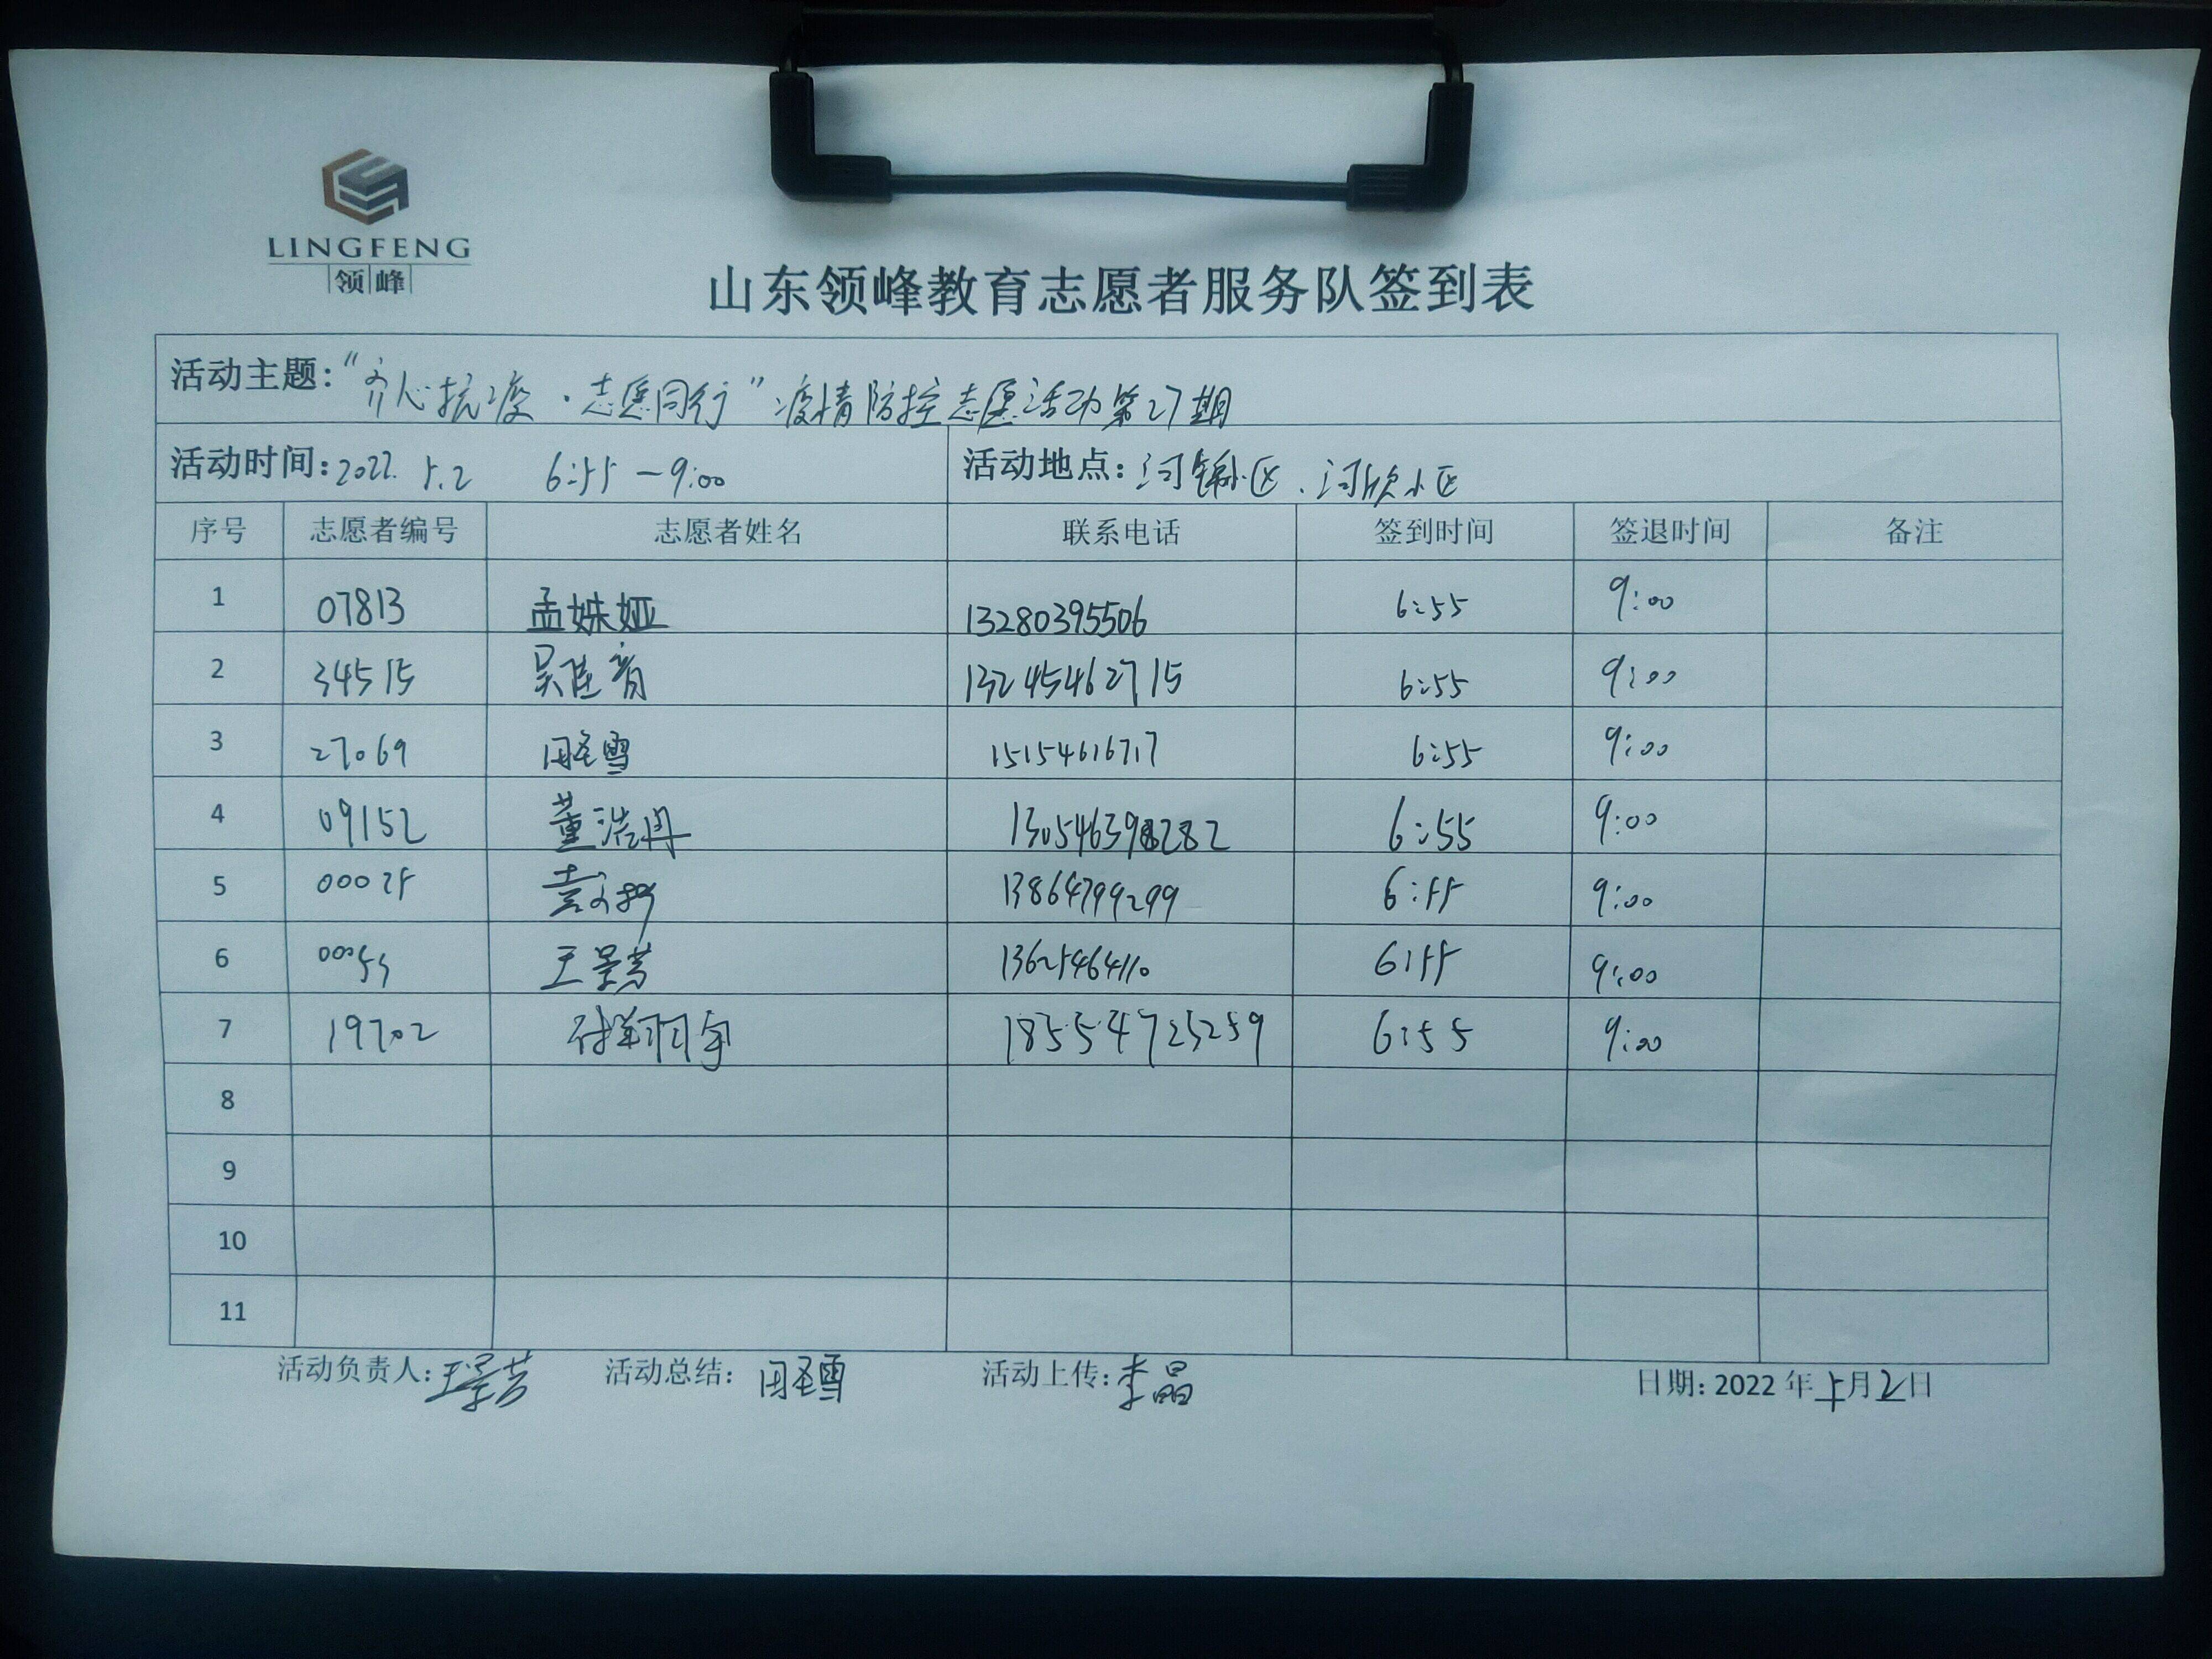 LINGFENG
领峰
山东领峰教育志愿者服务队签到表
活动主题："齐心抗疫·志愿同行"疫情防控志愿活动第27期
活动时间：2022.5.2 6:55—9:00 活动地点：河锦小区、河欣小区
序号 志愿者编号 志愿者姓名 联系电话 签到时间 签退时间 备注
1 07813 孟姝娅 13280395506 6:55 9:00
2 34515 吴佳育 13245462715 6:55 9:00
3 27069 周圣雪 15154616717 6:55 9:00
4 09152 董浩冉 6:55 9:00
5 00025 13864799299 6:55 9:00
6 00055 王景芳 13625464110 6:55 9:00
7 19702 付翔宇 18554725259 6:55 9:00
8
9
10
11
活动负责人：王景芳 活动总结：周圣雪 活动上传：李晶 日期：2022年5月2日